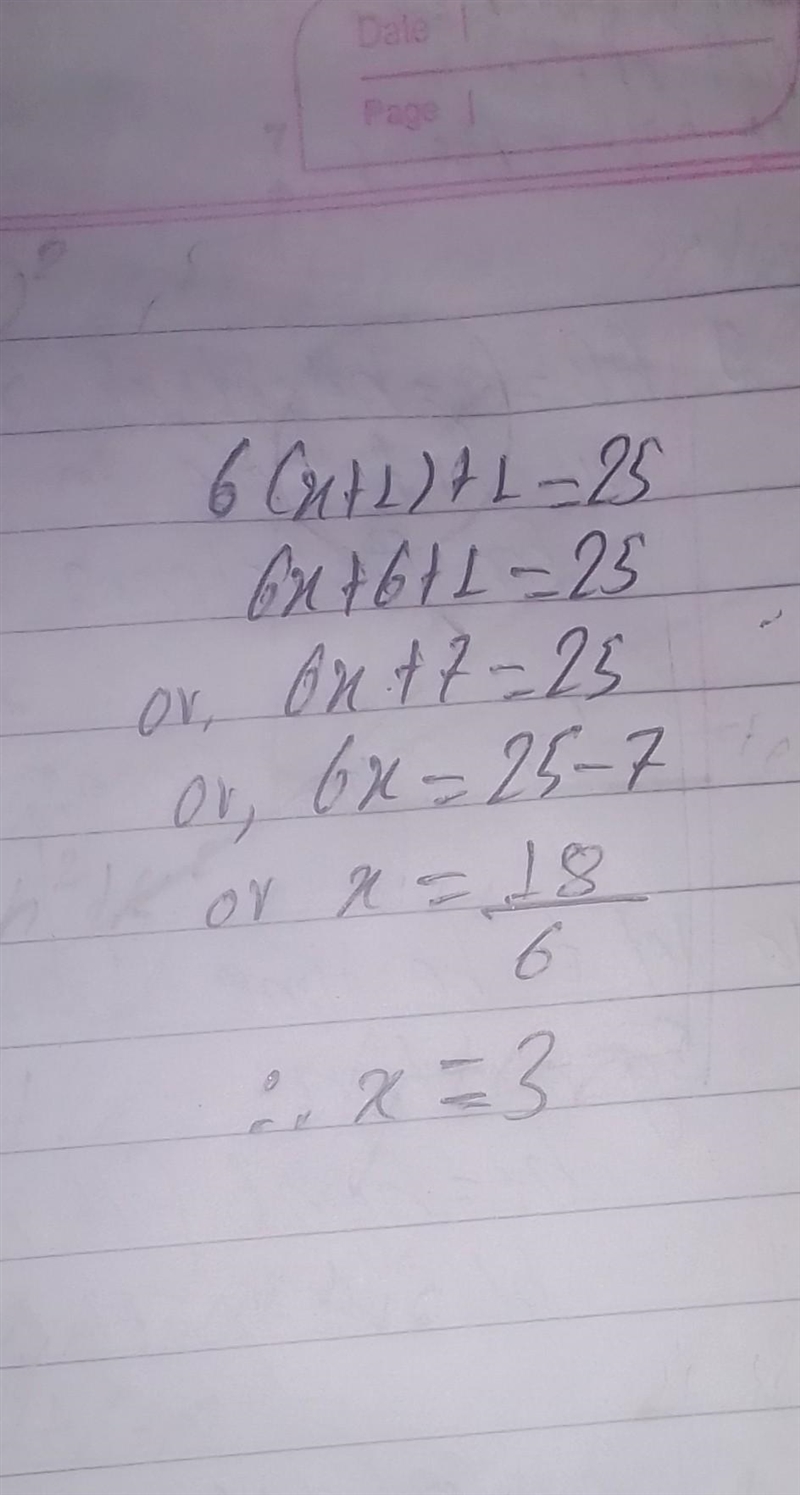 Date
Page
6(x+1)+1=25
6x+6+1=25
or, 6x+7=25
or, 6x=25-7
or x=18/6
∴ x=3